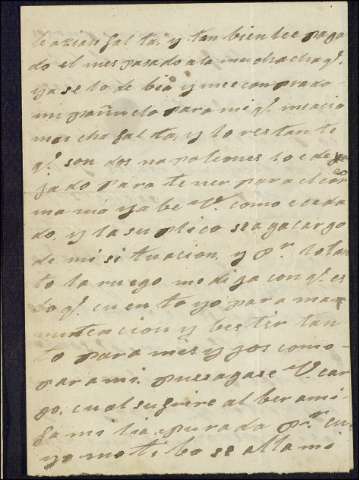 le azian falta, y tan bien lee paga
do el mes pasado ala muchacha q.^e
ya se lo de bia y mee conprado
un pañuelo para mi q.^e meacia
mucha falta, y lo restante
q.^e son dos napoleones lo e de
jado para tener para el
mamá ya be V. como e
do, y la suplico se aga cargo
de mi situacion, y p.^r lo tan
to la ruego me diga con q.^e es
do q.^e cuento yo para ma
nutencion y bestir tan
to para mis yjos como
para mi. pues agase V. car
go, cual sufrire al ber a mi
familia apurada p.^r cu
yo motibo se alla mi